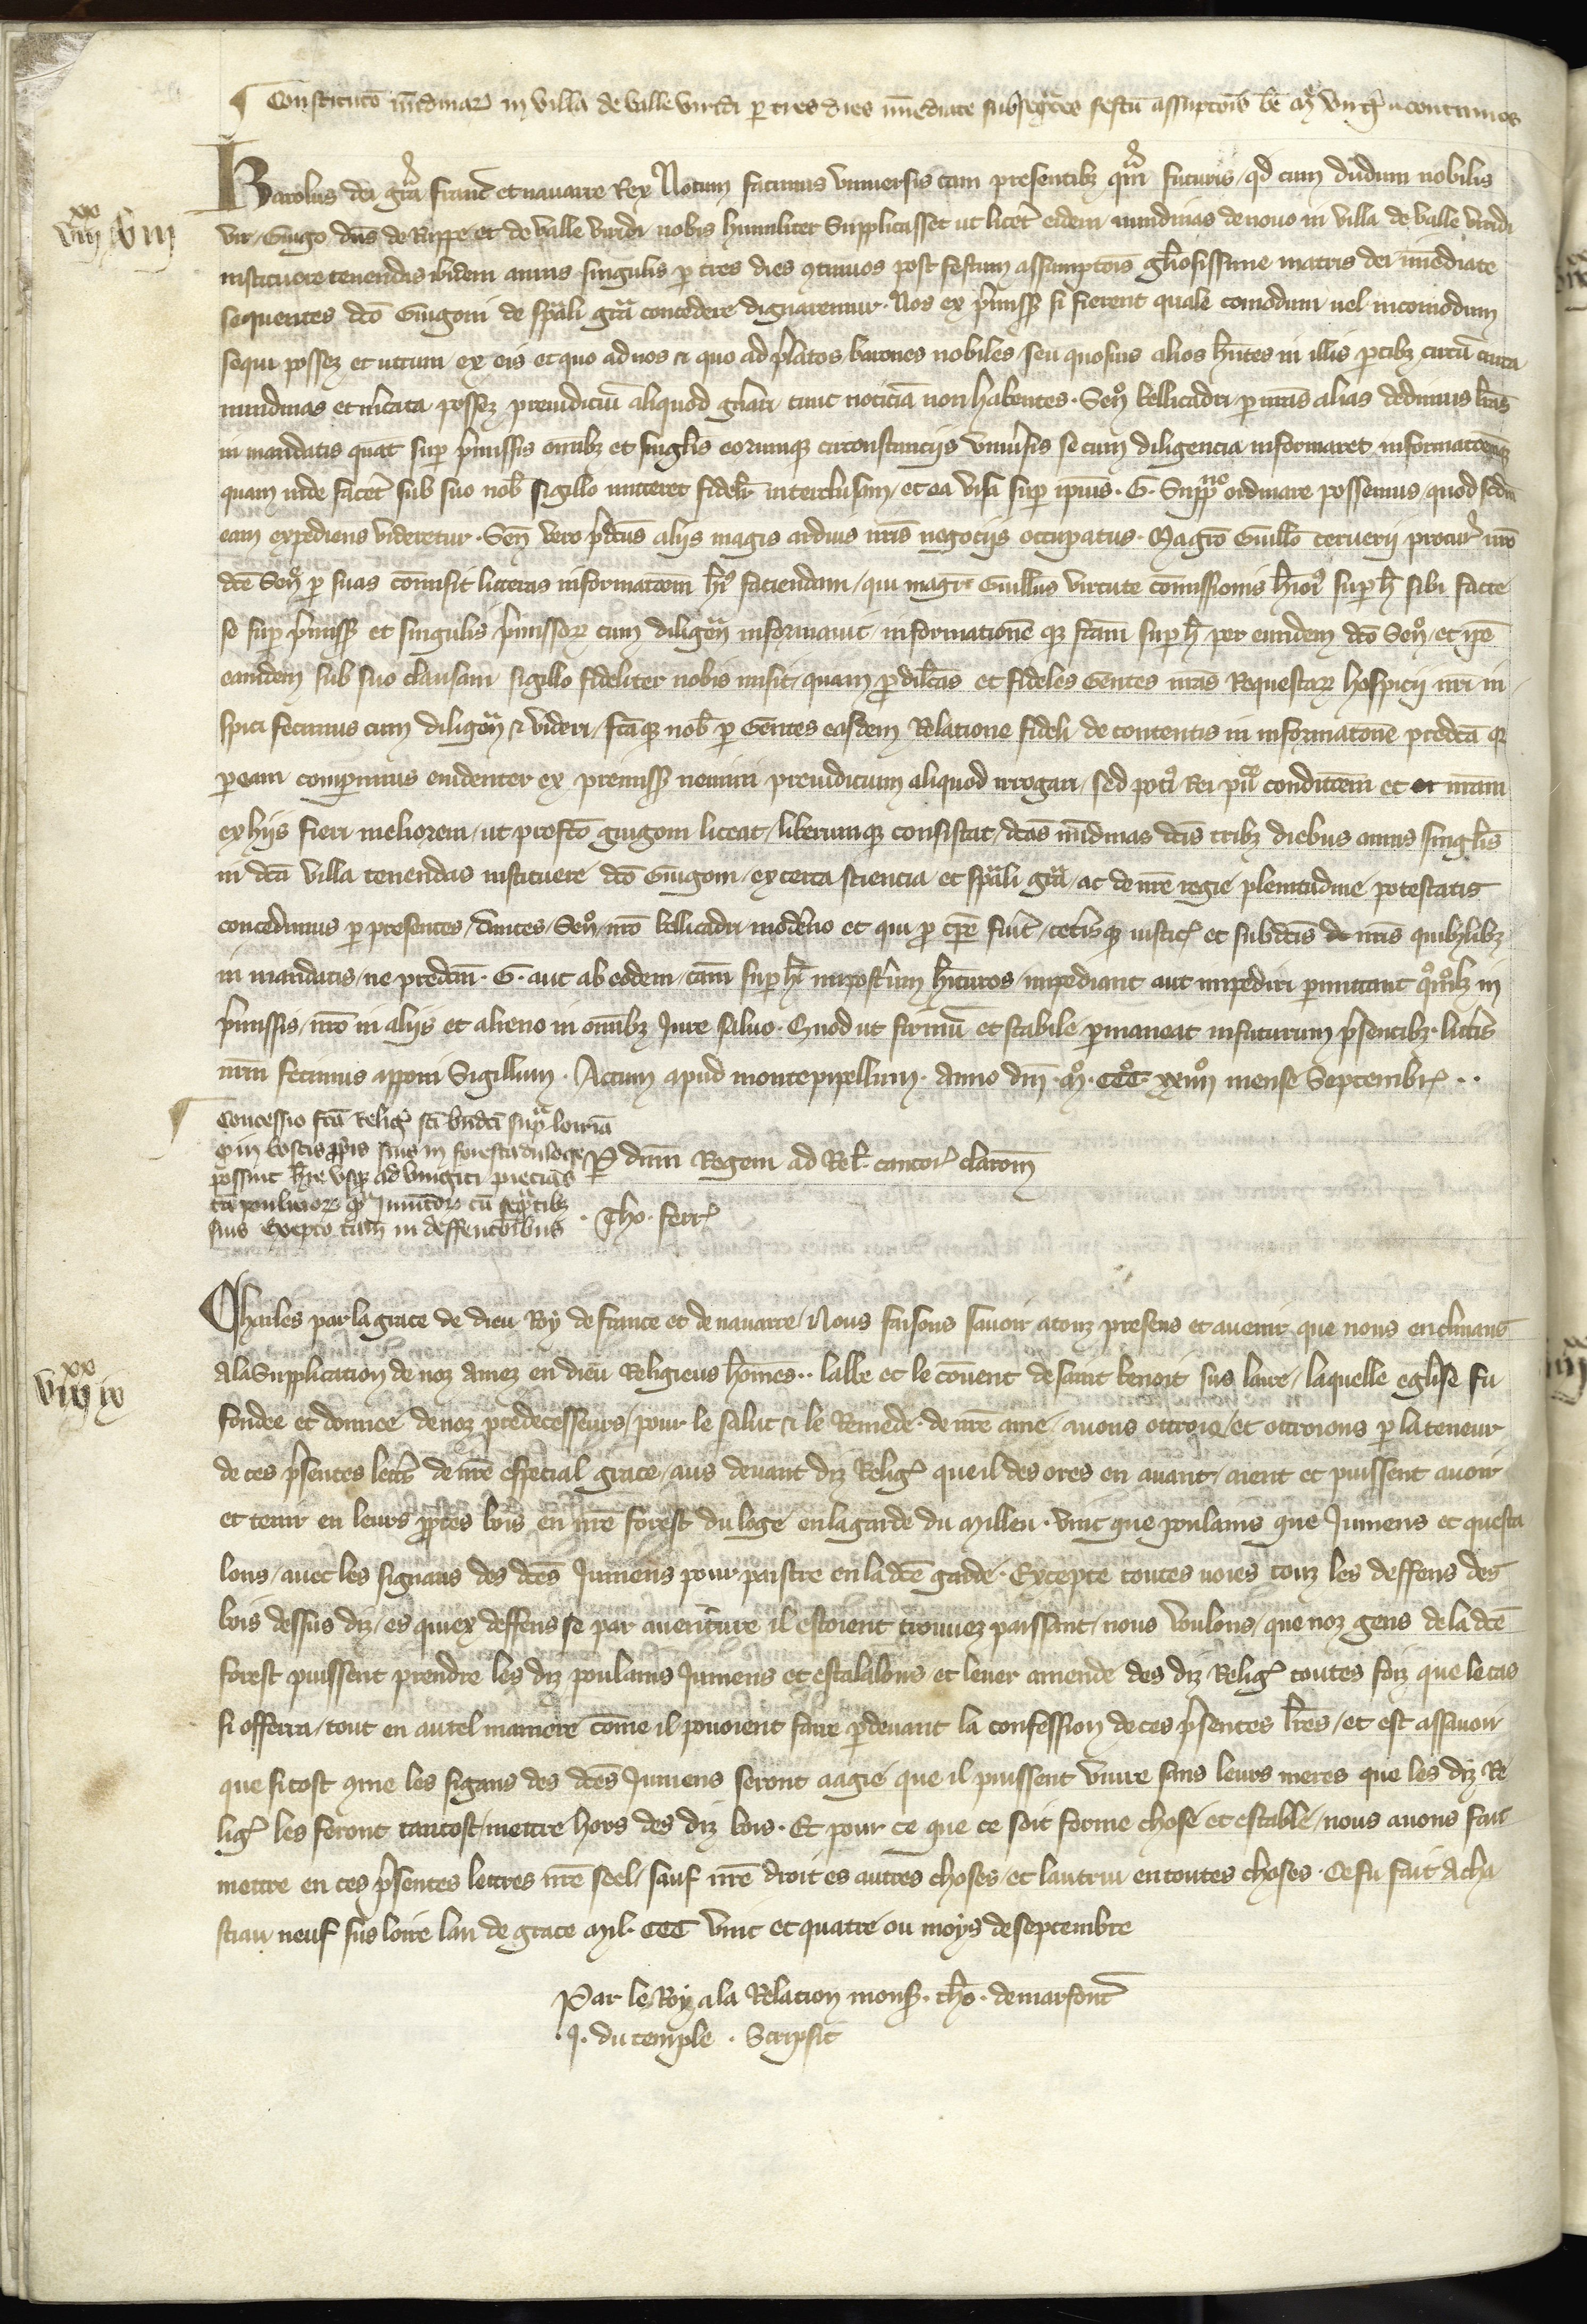 Constitucō nūdinar in villa de valle viridi per tres dies īmediate subseqētes festū assūptōis bē Mē virgīs cōtinuos
Karolus dei grā Franc̄ et navarre Rex Notum facimus vniversis tam presentibz qm̄ futuris, qd cum dudum nobilis
vir Guigo dn̄s de Ruppe et de valle viridi nobis humiliter Supplicasset ut licēt eidem nundinas de novo in villa de valle viridi
instituere tenendas ibidem annis singulis p tres dies ꝯtinuos post festum assumptōis gl̄iosissime matris dei īmediate
sequentes dcō Guigoni de sp̄ali grā concedere dignaremur. Nos ex p̄miss̄ si fierent quale comodum uel incomodum
sequi possez et utrum ex eis et quo ad nos et quo ad p̄latos barones nobiles seu quosuis alios hn̄tes in illis ptibz circū circa
nundinas et m̄cata possez preiudiciū aliquod gn̄ari tunc noticiā non habentes. Sen̄ bellicadri p nr̄as alias dedimus lr̄as
in mandatis quat̄ sup p̄missis om̄ibz et singl̄is eorumqz circonstanciis vniūsis se cum diligencia informaret informatōemqz
quam inde facēt sub suo nob̄ sigillo mitteret fidelr̄ interclusam, et ea visa sup ipius. G. Suppōne ordinare possemus quod scdm̄
eam expediens videretur. Sen̄ vero p̄dcūs aliis magis arduis nr̄is negociis occupatus. Magrō Guillō Ceruerii procur̄ nrō
dcē Sen̄ p suas cōmisit litteras informatōem h̄i faciendam, qui magr̄ Guillūs virtute cōmissionis h̄ioī sup h̄ sibi facte
se sup p̄miss̄ et singulis p̄missor̄ cum diligen̄ informauit, informationē qz fcām sup h̄ per eumdem dcō Sen̄, et ip̄e
eamdem sub suo clausam sigillo fideliter nobis misit, quam p dilc̄as et fideles Gentes nr̄as Requestar̄ hospicii nr̄i in
spici fecimus cum diligen̄ et videri, fcāqz nob̄ p Gentes easdem Relatione fideli de contentis in informatōne predcā qz
p eam comperimus euidenter ex premiss̄ nemini preiudicium aliquod irrogari, sed poti Rei pu᷑ conditōem et nr̄am
ex hiis fieri meliorem, ut prefcō guigoni liceat, liberumqz consistat, dcās nūdinas dcīs tribz diebus annis singl̄is
in dcā villa tenendas instituere dcō Guigoni, ex certa sciencia et sp̄ali grā, ac de nr̄e regie plenitudine potestatis
concedimus p presentes, dantes, Sen̄ nrō bellicadri moderno et qui p tp̄e fuīt, cet̄isqz iustic̄ et subdcīs nr̄is quibzlibz
in mandatis, ne predcm̄. G. aut ab eodem, cām sup h̄ imposteīum hīturos, impediant aut impediri pmittant qōmolibz in
p̄missis, nrō in aliis et alieno in om̄ibz Iure saluo. Quod ut firmū et stabile pmaneat in futurum p̄sentibz litīis
nrm̄ fecimus apponi Sigillum. Actum apud montepipessullum. Anno dn̄i Mo. CCCo. xxiiijo mense Septembr̄..
Concessio fcā Reliḡ scī bn̄dcī sup̄ loiriā
qz in boscis ppriis suis in foresta du loge
possint hr̄e vsqz ad viinginti pecias
tā poulinor̄ qm̄ Iumētor̄ cū seqētibz
suis excepto tam̄ in deffentōibus
P dnm̄ Regem ad Rel̄. cantor̄ clarom̄
. Tho. ferr̄
xx
viij viij
Charles par la grace de dieu Roy de france et de nauarre, Nous faisons sauoir atouz presens et auenir que nous enclinans
ala Supplication de noz amez en dieu Religieus hōmes.. labbe et le cōuent de saint benoit sus loire, laquelle eglise fu
fondee et donnee de noz predecesseurs, pour le salut et le Remede de nr̄e ame, auons ottroie, et ottroions p la teneur
de ces p̄sentes lettr̄s de nr̄e especial grace, aus deuant diz Reliḡ que il des ores en auant, aient et puissent auoir
et tenir en leurs pprēs bois en nr̄e forest du loge en la garde du millieu. vint que poulains que Jumens et questa
lons, auec les siguans des dcēs Jumens pour paistre en la dcē garde. Excepte toutes uoies touz les deffens des
bois dessus diz, es quiex deffens se par auenture il estoient trouuez paissant, nous voulons, que noz gens de la dcē
forest puissent prendre les diz poulains Jumens et estalalons et leuer amende des diz Reliḡ toutes foiz que le cas
si offerra, tout en autel maniere cōme il pouoient faire p deuant la confession de ces p̄sentes lr̄es, et est assauoir
que si tost ꝯme les sigans des dcēs Jumens seront aagie que il puissent viure sans leurs meres que les diz Re
liḡ les feront tantost mettre hors des diz bois. Et pour ce que ce soit ferme chose et estable, nous auons fait
mettre en ces p̄sentes lettres nr̄e seel, sauf nr̄e droit es autres choses, et lautrui en toutes choses. Ce fu fait A cha
stiau neuf sus loire lan de grace mil. CCC vint et quatre ou moys de septembre
xx
viij ix
Par le Roy a la Relacion mons̄. tho. de marfont̄
. J. du temple. Scripsit